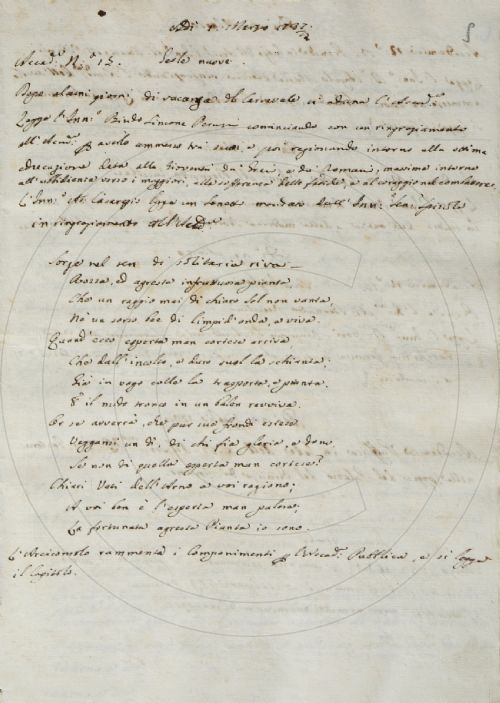 Adì 7 Marzo 1737/8
Accad.ª N.º 15. Sesto nuove.
Dopo alcuni giorni di vacanza del Carnevale si aduna l'Accad.ª
Legge l'Inn.º Bindo Simone Peruzzi cominciando con un ringraziamento
all'Accad.ª p averlo ammesso tra suoi, e poi ragionando intorno alla ottima
educazione data alla Gioventù da' Greci, e da' Romani, massime intorno
all'ubbidienza verso i maggiori, alla sofferenza delle fatiche, e al coraggio nel combattere
L'Inn.º Ab. Casaregi legge un Sonetto mandato dall'Inn.º
in ringraziamento all'Accad.ª
Sorge nel sen di solitaria riva
Rozza, ed agreste infruttuosa pianta,
Che un raggio mai di chiaro Sol non vanta,
Nè un sorso bee di limpid'onda, e viva.
Quand'ecco esperta man cortese arriva
Che dall'incolto, e duro suol la schianta;
Poi in vago colle la trasporta, e pianta,
E il nudo tronco in un balen ravviva.
Or se avverrà, che pur sue frondi estese
Veggansi un dì, di chi fia gloria, e dono,
Se non di quella esperta man cortese?
Chiari Vati dell'Arno a voi ragiono;
A voi ben è l'esperta man palese;
La fortunata agreste Pianta io sono.
L'Arciconsolo rammenta i Componimenti p l'Accad.ª Pubblica, e si legge
il Capitolo.